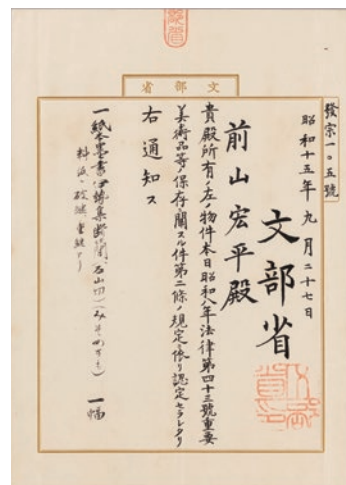 文部省
發宗一〇五號
昭和十五年九月二十七日
文部省
前山宏平殿
貴殿所有ノ左ノ物件本日昭和八年法律第四十三號重要
美術品等ノ保存ニ關スル件第二條ノ規定ニ依リ認定セラレタリ
右通知ス
一紙本墨書伊勢集斷簡(石山切)(みそめすも) 一幅
料紙ハ破繼重繼アリ